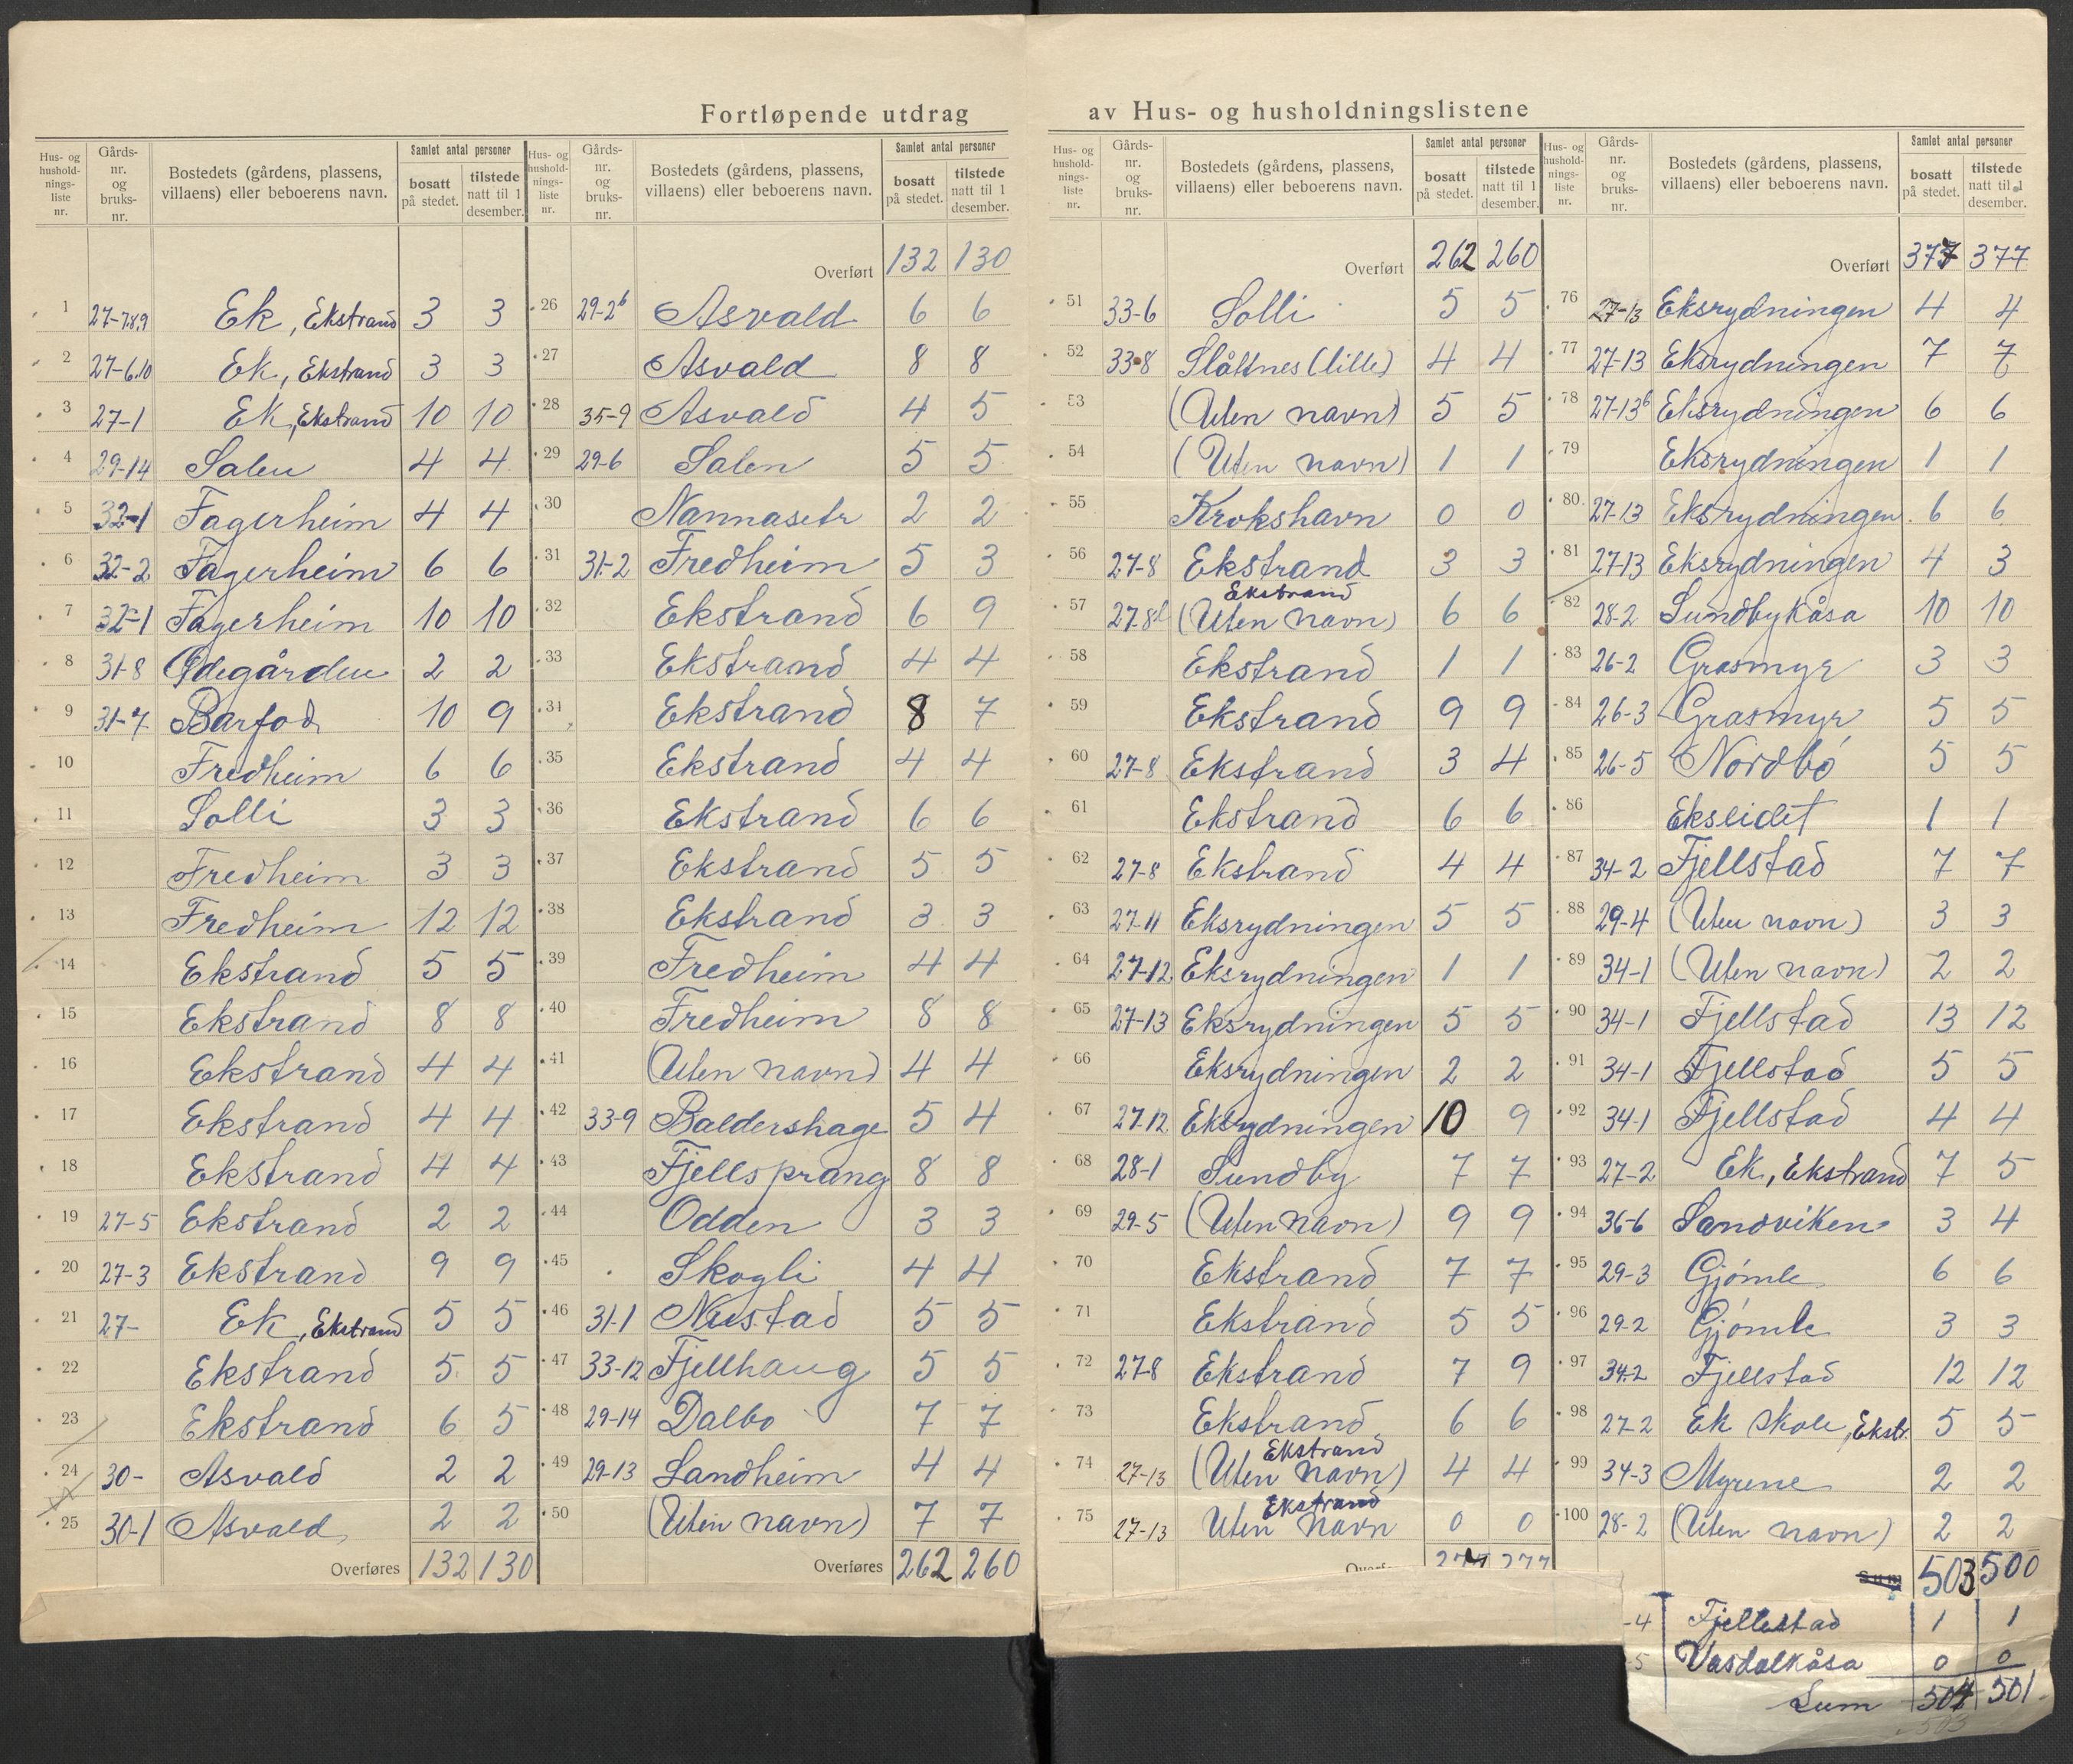 Fortløpende utdrag av Hus- og husholdningslistene
Hus- og husholdnings-liste nr. | Gårds-nr. og bruks-nr. | Bostedets (gårdens, plassens, villaens) eller beboerens navn. | Samlet antal personer | bosatt på stedet. | tilstede natt til 1 desember.
1 27-7,8,9 Ek, Ekstrand 3 3
2 27-6,10 Ek, Ekstrand 3 3
3 27-1 Ek, Ekstrand 10 10
4 29-14 Salen 4 4
5 32-1 Fagerheim 4 4
6 32-2 Fagerheim 6 6
7 32-1 Fagerheim 10 10
8 31-8 Ødegården 2 2
9 31-7 Barfod 10 9
10 Fredheim 6 6
11 Solli 3 3
12 Fredheim 3 3
13 Fredheim 12 12
14 Ekstrand 5 5
15 Ekstrand 8 8
16 Ekstrand 4 4
17 Ekstrand 4 4
18 Ekstrand 4 4
19 27-5 Ekstrand 2 2
20 27-3 Ekstrand 9 9
21 27- Ek, Ekstrand 5 5
22 Ekstrand 5 5
23 Ekstrand 6 5
24 30- Asvald 2 2
25 30-1 Asvald 2 2
Overføres 132 130
Hus- og husholdnings-liste nr. | Gårds-nr. og bruks-nr. | Bostedets (gårdens, plassens, villaens) eller beboerens navn. | Samlet antal personer | bosatt på stedet. | tilstede natt til 1 desember.
Overført 132 130
26 29-2b Asvald 6 6
27 Asvald 8 8
28 35-9 Asvald 4 5
29 29-6 Salen 5 5
30 Nannasetr 2 2
31 31-2 Fredheim 5 3
32 Ekstrand 6 9
33 Ekstrand 4 4
34 Ekstrand 8 7
35 Ekstrand 4 4
36 Ekstrand 6 6
37 Ekstrand 5 5
38 Ekstrand 3 3
39 Fredheim 4 4
40 Fredheim 8 8
41 (Uten navn) 4 4
42 33-9 Baldershage 5 4
43 Fjellsprang 8 8
44 Odden 3 3
45 Skogli 4 4
46 31-1 Nustad 5 5
47 33-12 Fjellhaug 5 5
48 29-14 Dalbo 7 7
49 29-13 Landheim 4 4
50 (Uten navn) 7 7
Overføres 262 260
Hus- og hushold-nings-liste nr. | Gårds-nr. og bruks-nr. | Bostedets (gårdens, plassens, villaens) eller beboerens navn. | Samlet antal personer | bosatt på stedet. | tilstede natt til 1 desember.
Overført 262 260
51 33-6 Solli 5 5
52 33-8 Slåttnes (lille) 4 4
53 (Uten navn) 5 5
54 (Uten navn) 1 1
55 Krokshavn 0 0
56 27-8 Ekstrand 3 3
Ekstrand
57 27-8 (Uten navn) 6 6
58 Ekstrand 1 1
59 Ekstrand 9 9
60 27-8 Ekstrand 3 4
61 Ekstrand 6 6
62 27-8 Ekstrand 4 4
63 27-11 Eksrydningen 5 5
64 27-12 Eksrydningen 1 1
65 27-13 Eksrydningen 5 5
66 Eksrydningen 2 2
67 27-12 Eksrydningen 10 9
68 28-1 Sundby 7 7
69 29-5 (Uten navn) 9 9
70 Ekstrand 7 7
71 Ekstrand 5 5
72 27-8 Ekstrand 7 9
73 Ekstrand 6 6
Ekstrand
74 27-13 (Uten navn) 4 4
Ekstrand
75 27-13 Uten navn 0 0
377
Hus- og hushold-nings-liste nr. | Gårds-nr. og bruks-nr. | Bostedets (gårdens, plassens, villaens) eller beboerens navn. | Samlet antal personer | bosatt på stedet. | tilstede natt til 1 desember.
Overført 377 377
76 27-13 Eksrydningen 4 4
77 27-13 Eksrydningen 7 7
78 27-13b Eksrydningen 6 6
79 Eksrydningen 1 1
80 27-13 Eksrydningen 6 6
81 27-13 Eksrydningen 4 3
82 28-2 Sundbykåsa 10 10
83 26-2 Grasmyr 3 3
84 26-3 Grasmyr 5 5
85 26-5 Nordbó 5 5
86 Ekseidet 1 1
87 34-2 Fjellstad 7 7
88 29-4 (Uten navn) 3 3
89 34-1 (Uten navn) 2 2
90 34-1 Fjellstad 13 12
91 34-1 Fjellstad 5 5
92 34-1 Fjellstad 4 4
93 27-2 Ek, Ekstrand 7 5
94 36-6 Sandviken 3 4
95 29-3 Gjómle 6 6
96 29-2 Gjómle 3 3
97 34-2 Fjellstad 12 12
98 27-2 Ek skole, Ekstr. 5 5
99 34-3 Myrene 2 2
100 28-2 (Uten navn) 2 2
Sum 503 500
-4 Fjellestad 1 1
-5 Vasdalkåsa 0 0
Sum 504 501
503